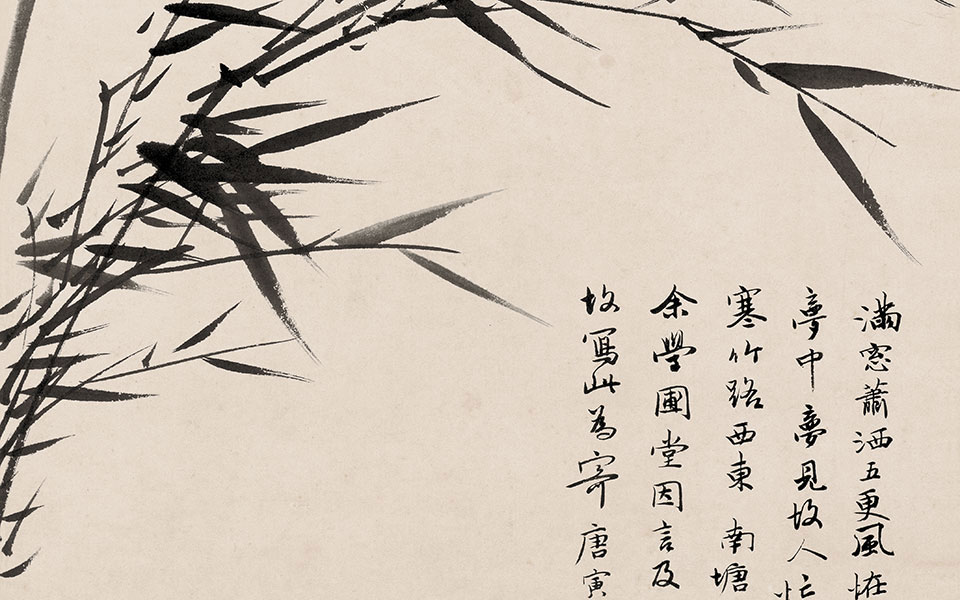 滿窓蕭洒五更風恠
夢中夢見故人忙
寒竹路西東 南塘
余學圃堂因言及
故寫此為寄 唐寅